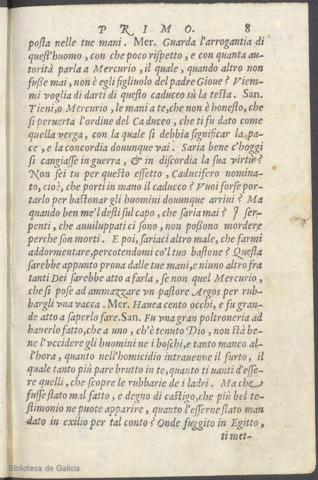 PRIMO. 8
posta nelle tue mani. Mer. Guarda l'arrogantia di
quest'huomo, con che poco rispetto, e con quanta au-
torità parla a Mercurio, il quale, quando altro non
fusse mai, non è egli figliuolo del padre Gioue? Viem-
mi voglia di darti di questo caduceo sù la testa. San.
Tieni, o Mercurio, le mani a te, che non è honesto, che
si peruerta l'ordine del Caduceo, che ti fu dato come
quella verga, con la quale si debbia significar la pa-
ce, e la concordia douunque vai. Saria bene c'hoggi
si cangiasse in guerra, & in discordia la sua virtù?
Non sei tu per questo effetto, Caducifero nomina-
to, cioè, che porti in mano il caduceo? Vuoi forse por-
tarlo per bastonar gli huomini douunque arriui? Ma
quando ben me'l desti sul capo, che saria mai? I ser-
penti, che auuiluppati ci sono, non possono mordere
perche son morti. E poi, sariaci altro male, che farmi
addormentare, percotendomi co'l tuo bastone? Questa
sarebbe appunto proua dalle tue mani, e niuno altro fra
tanti Dei sarebbe atto a farla, se non quel Mercurio,
che si pose ad ammazzare vn pastore Argos per rub-
bargli vna vacca. Mer. Hauea cento occhi, e fu gran-
de atto a saperlo fare. San. Fu vna gran poltroneria ad
hauerlo fatto, che a uno, ch'è tenuto Dio, non stà be-
ne l'vccidere gli huomini ne i boschi, e tanto manco al-
l'hora, quanto nell'homicidio intrauenne il furto, il
quale tanto più pare brutto in te, quanto ti uanti d'esse-
re quelli, che scopre le rubbarie de i ladri. Ma che
fusse stato mal fatto, e degno di castigo, che più bel te-
stimonio ne puote apparire, quanto l'esserne stato man
dato in exilio per tal conto? Onde fuggito in Egitto,
ti met-
Biblioteca de Galicia